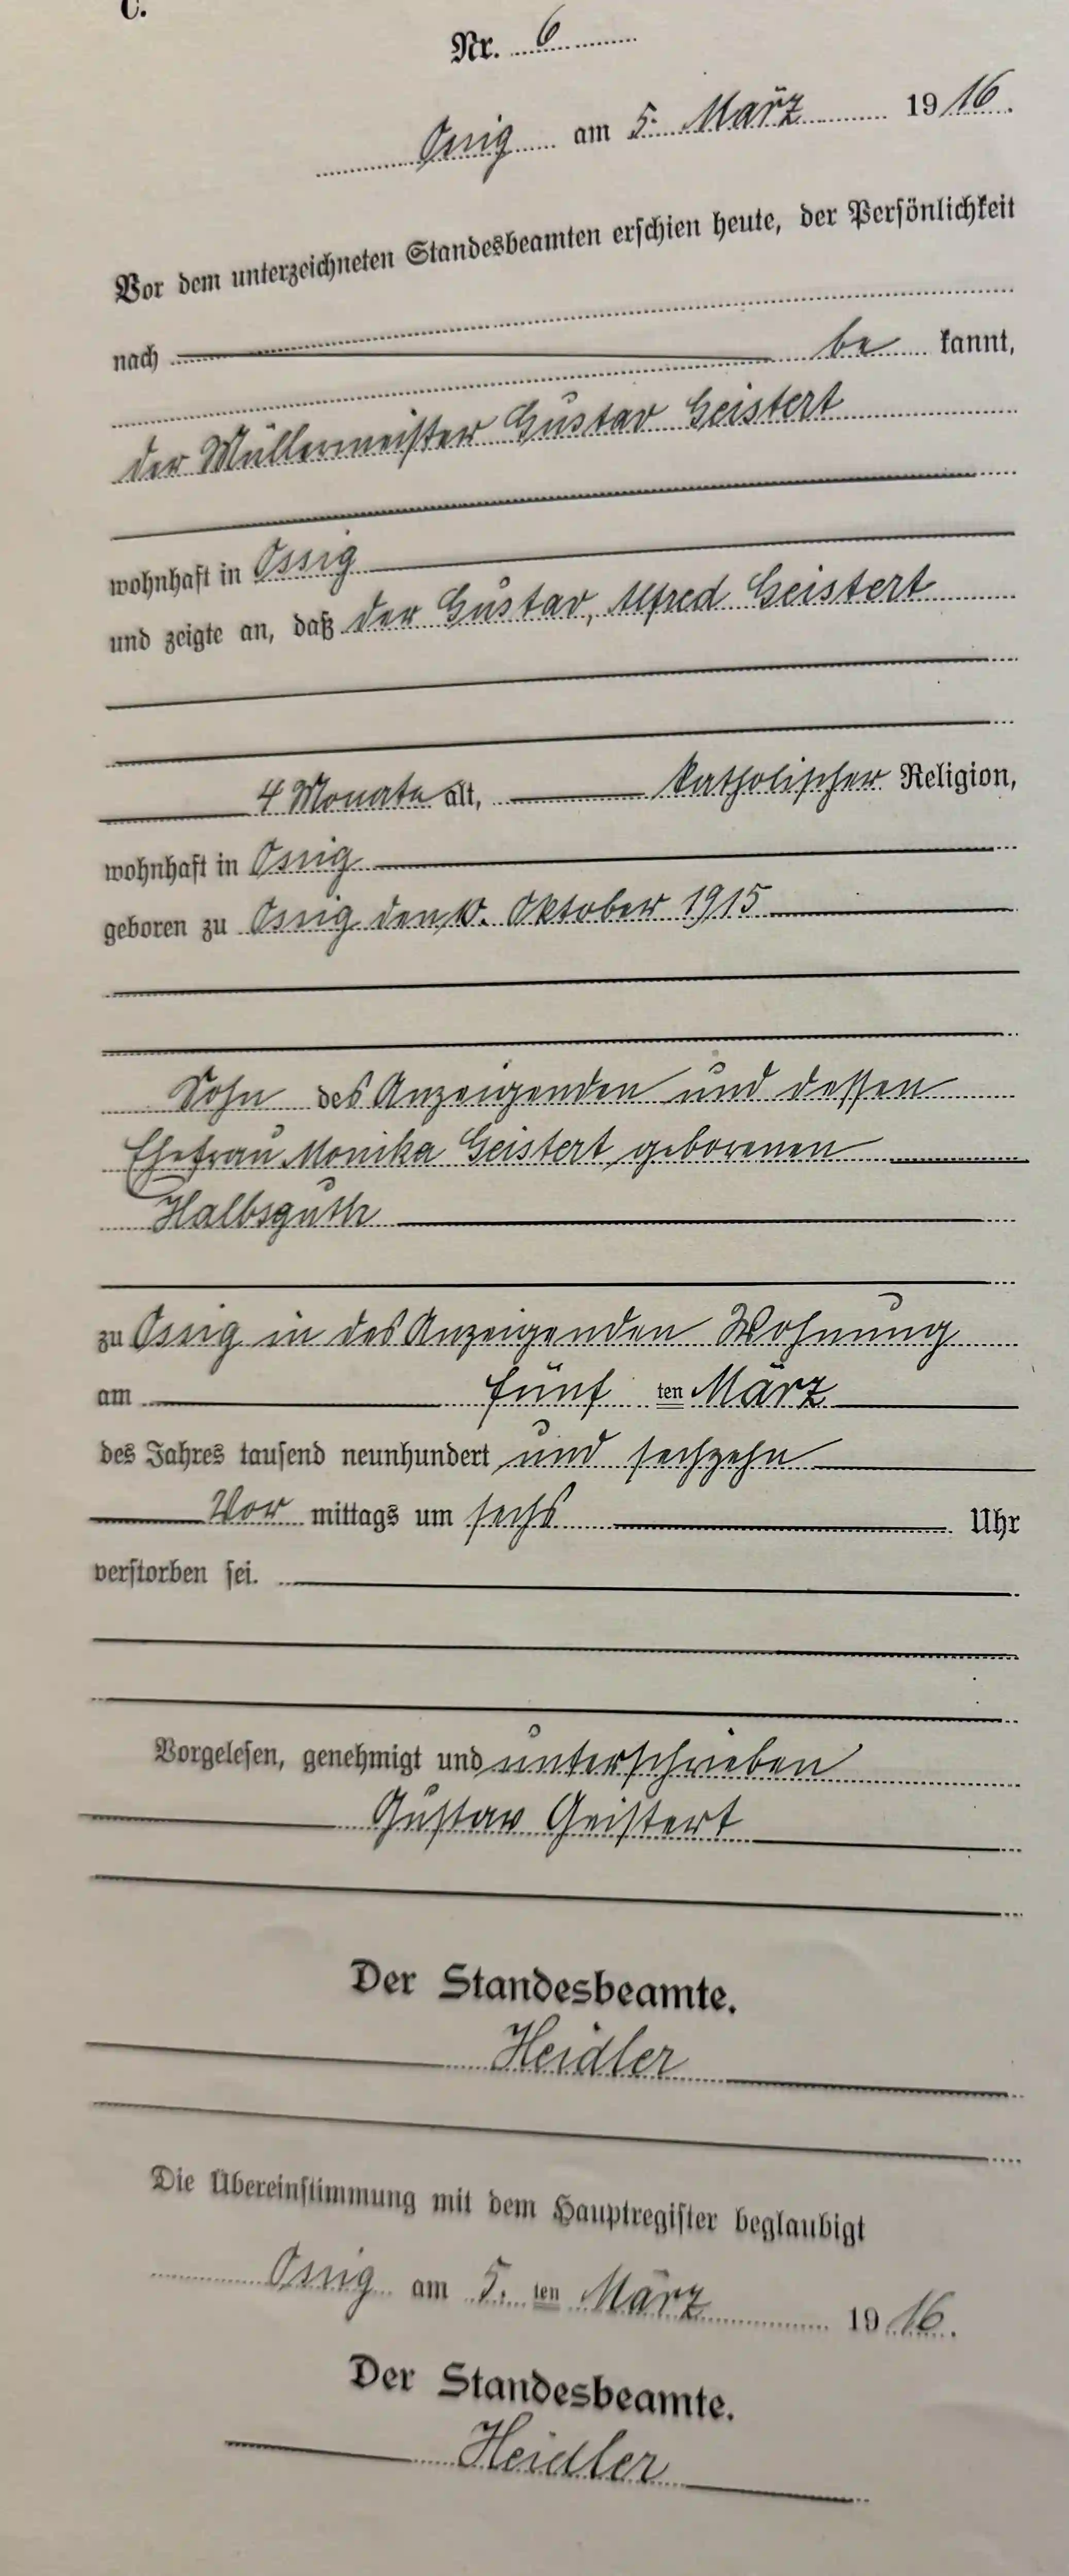 C.
Nr. 6
Ossig am 5. März 1916.
Vor dem unterzeichneten Standesbeamten erschien heute, der Persönlichkeit
nach
be kannt,
der Müllermeister Gustav Geistert
wohnhaft in Ossig
und zeigte an, daß der Gustav, Alfred Geistert
4 Monate alt, katholischer Religion,
wohnhaft in Ossig
geboren zu Ossig den Oktober 1915
Sohn des Anzeigenden und dessen
Ehefrau Monika Geistert geborenen
Halbsguth
zu Ossig in des Anzeigenden Wohnung
am fünf ten März
des Jahres tausend neunhundert und sechzehn
Vor mittags um sechs Uhr
verstorben sei.
Vorgelesen, genehmigt und unterschrieben
Gustav Geistert
Der Standesbeamte.
Heidler
Die Übereinstimmung mit dem Hauptregister beglaubigt
Ossig am 5. ten März 1916.
Der Standesbeamte.
Heidler